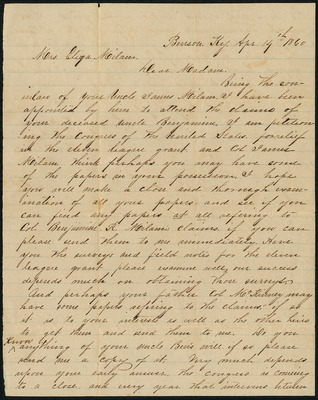 Benson, Ky, Apr 19th 1860
Mrs Eliza Milam.
Dear Madam.
Being the son
in law of your Uncle James Milam & have been
appointed by him to attend the claims of
your deceased uncle Benjamine, I am petition
ing the Congress of the United States,
in the eleven league grant and Col James
Milam think perhaps you may have some
of the papers in your possession & I hope
you will make a close and thorough exam-
ination of all your papers and see if you
can find any papers at all refering to
Col Benjamine R. Milam claims, if you can
please send them to me immediately. Have
you the surveys and field notes for the eleven
league grant, please examine well, our success
depends much on obtaining those surveys.
And perhaps your father Col McKinney may
have some papers refering to the claims, if so
it is to your interest as well as the other heirs
to get them and send them to me. Do you
know anything of your uncle Bens will if so please
send me a copy of it. Very much depends
upon your early answer the congress is coming
to a close and every year that intervenes between